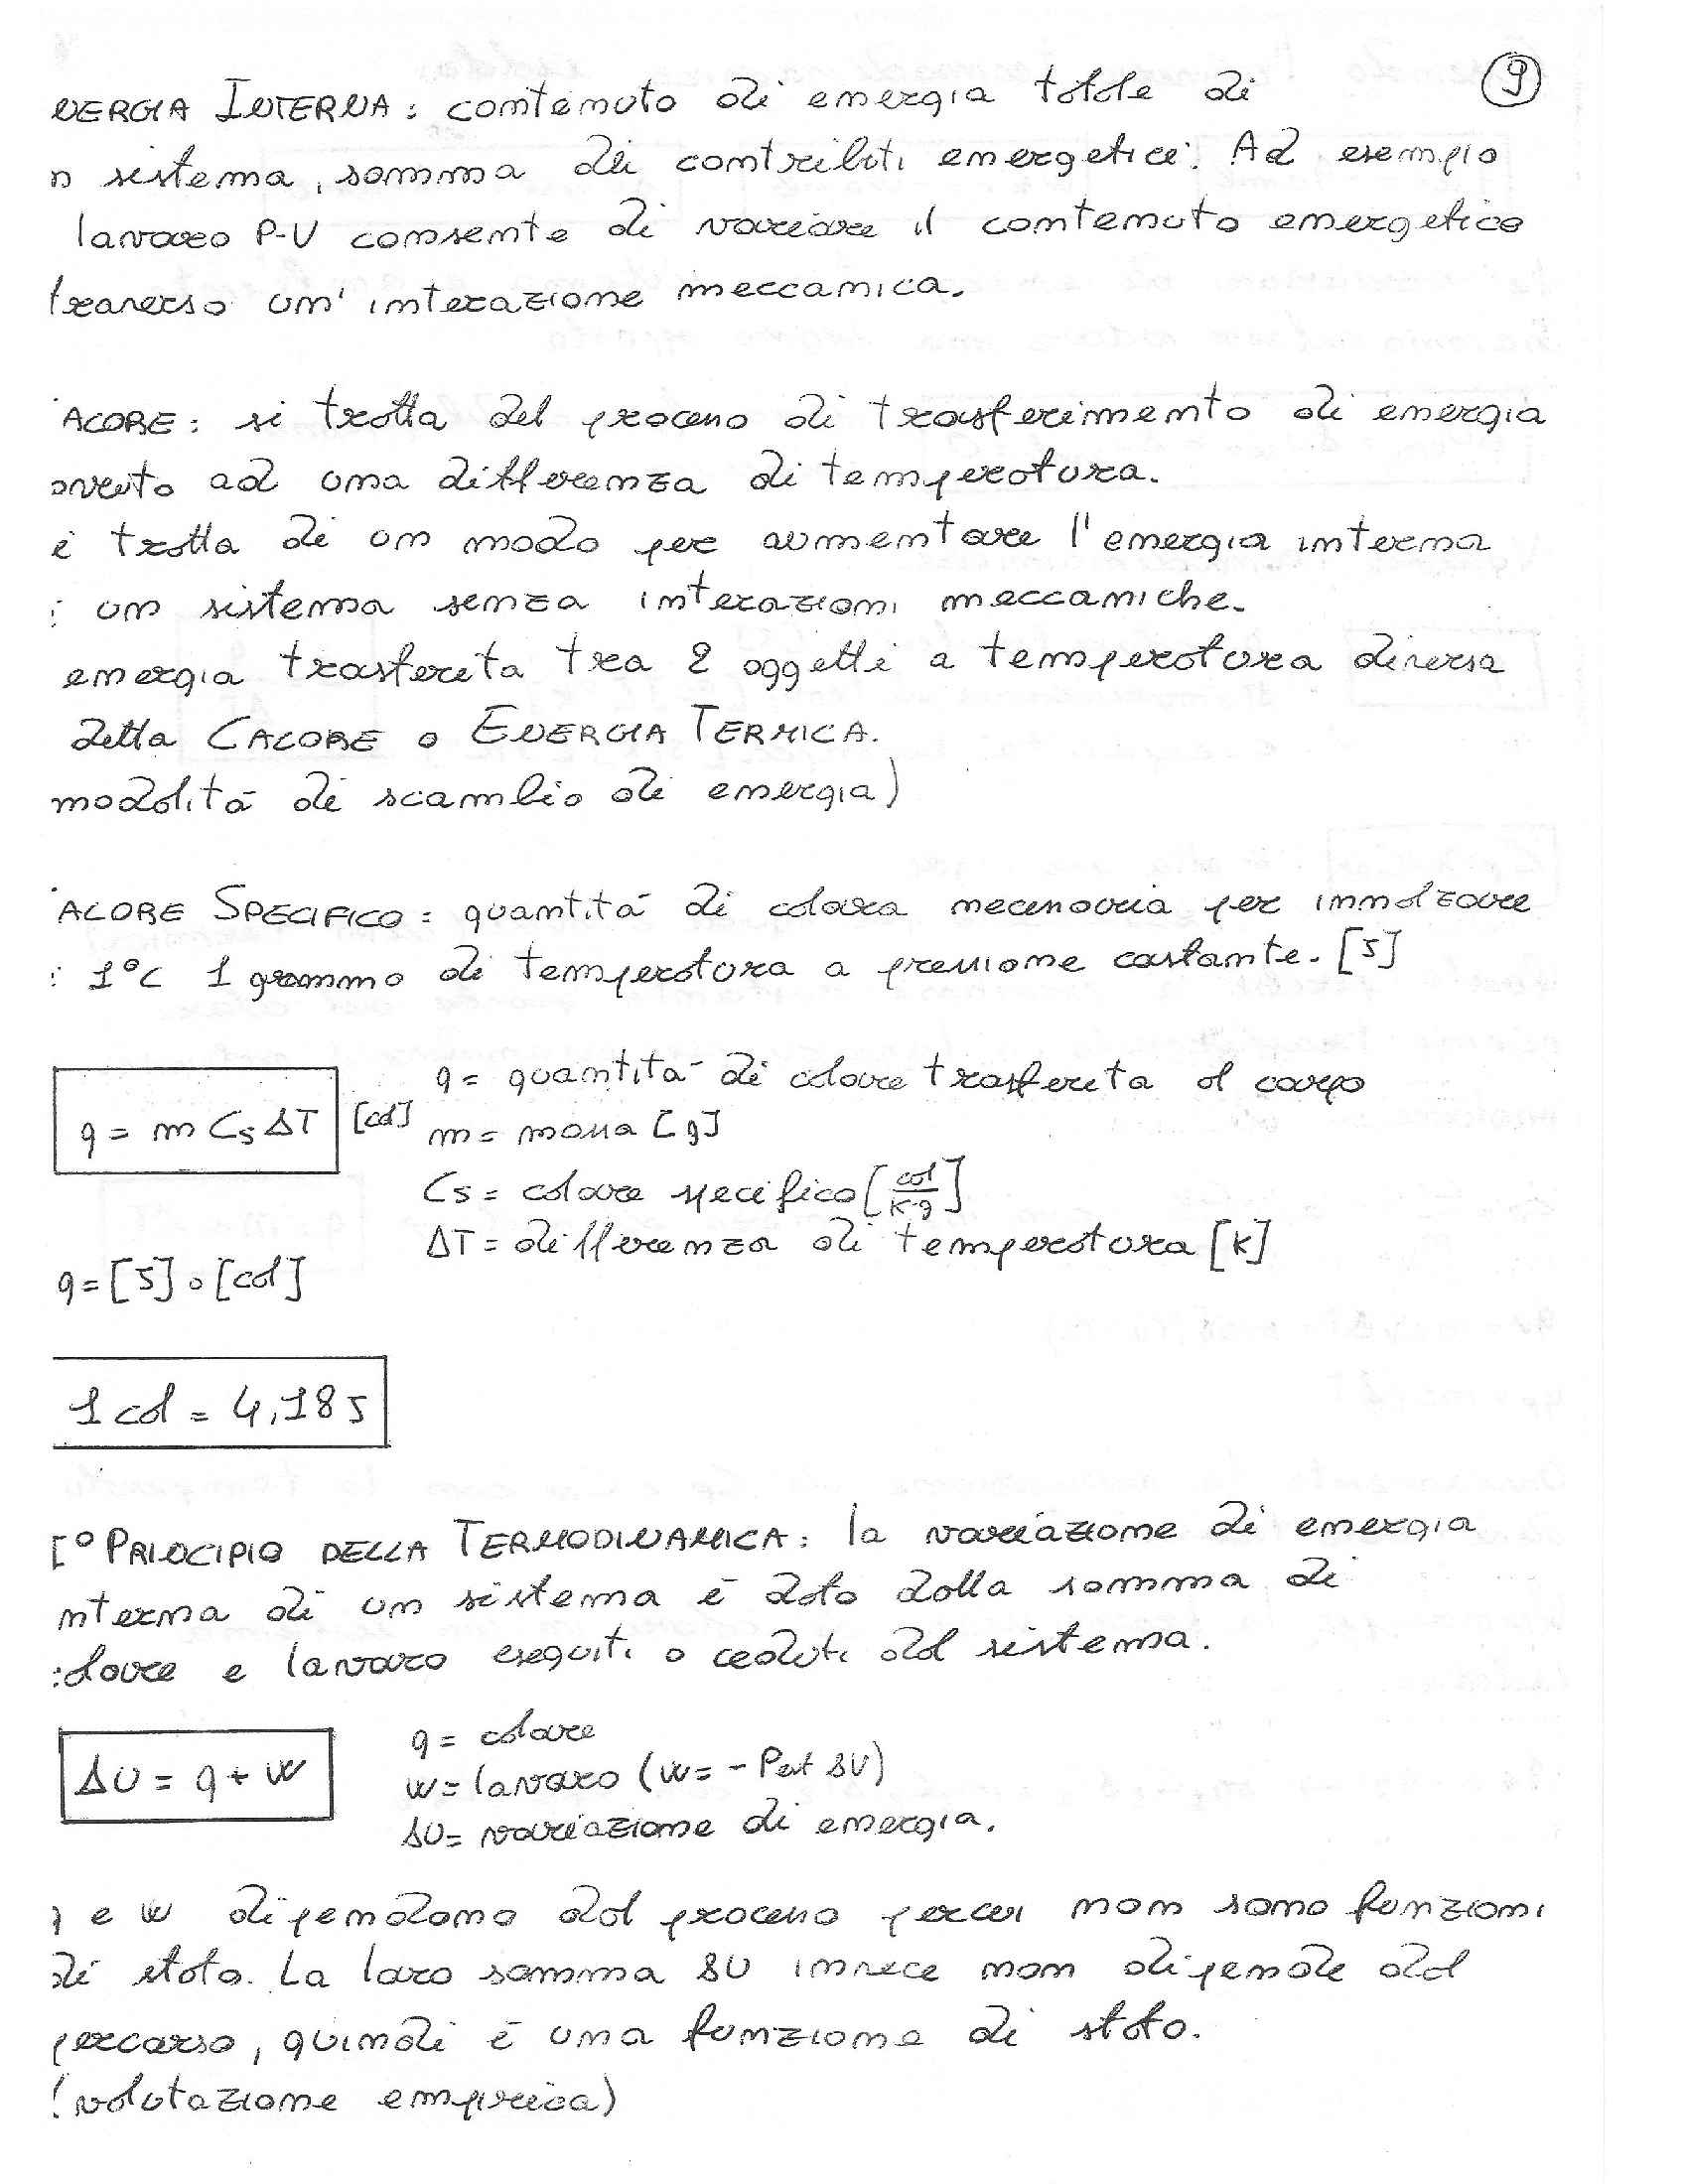 9
NERGIA INTERNA: contenuto di energia totale di
n sistema, somma dei contributi energetici. Ad esempio
lavoro P-V consente di variare il contenuto energetico
traverso un' interazione meccanica.
ALORE: si tratta del processo di trasferimento di energia
ovuto ad una differenza di temperatura.
i tratta di un modo per aumentare l'energia interna
un sistema senza interazioni meccaniche.
energia trasferita tra 2 oggetti a temperatura diversa
detta CALORE o ENERGIA TERMICA.
modalità di scambio di energia)
ALORE SPECIFICO: quantità di calore necessaria per innalzare
1°C 1 grammo di temperatura a pressione costante. [J]
q = m Cs ΔT [cal]
q = quantità di calore trasferita al corpo
m = massa [g]
Cs = calore specifico [cal/K·g]
ΔT = differenza di temperatura [K]
q = [J] o [cal]
1 cal = 4,18 J
I° PRINCIPIO DELLA TERMODINAMICA: la variazione di energia
nterna di un sistema è data dalla somma di
alore e lavoro eseguiti o ceduti dal sistema.
ΔU = q + w
q = calore
w = lavoro (w = - Pext ΔV)
ΔU = variazione di energia.
q e w dipendono dal processo per cui non sono funzioni
di stato. La loro somma ΔU invece non dipende dal
percorso, quindi è una funzione di stato.
(valutazione empirica)